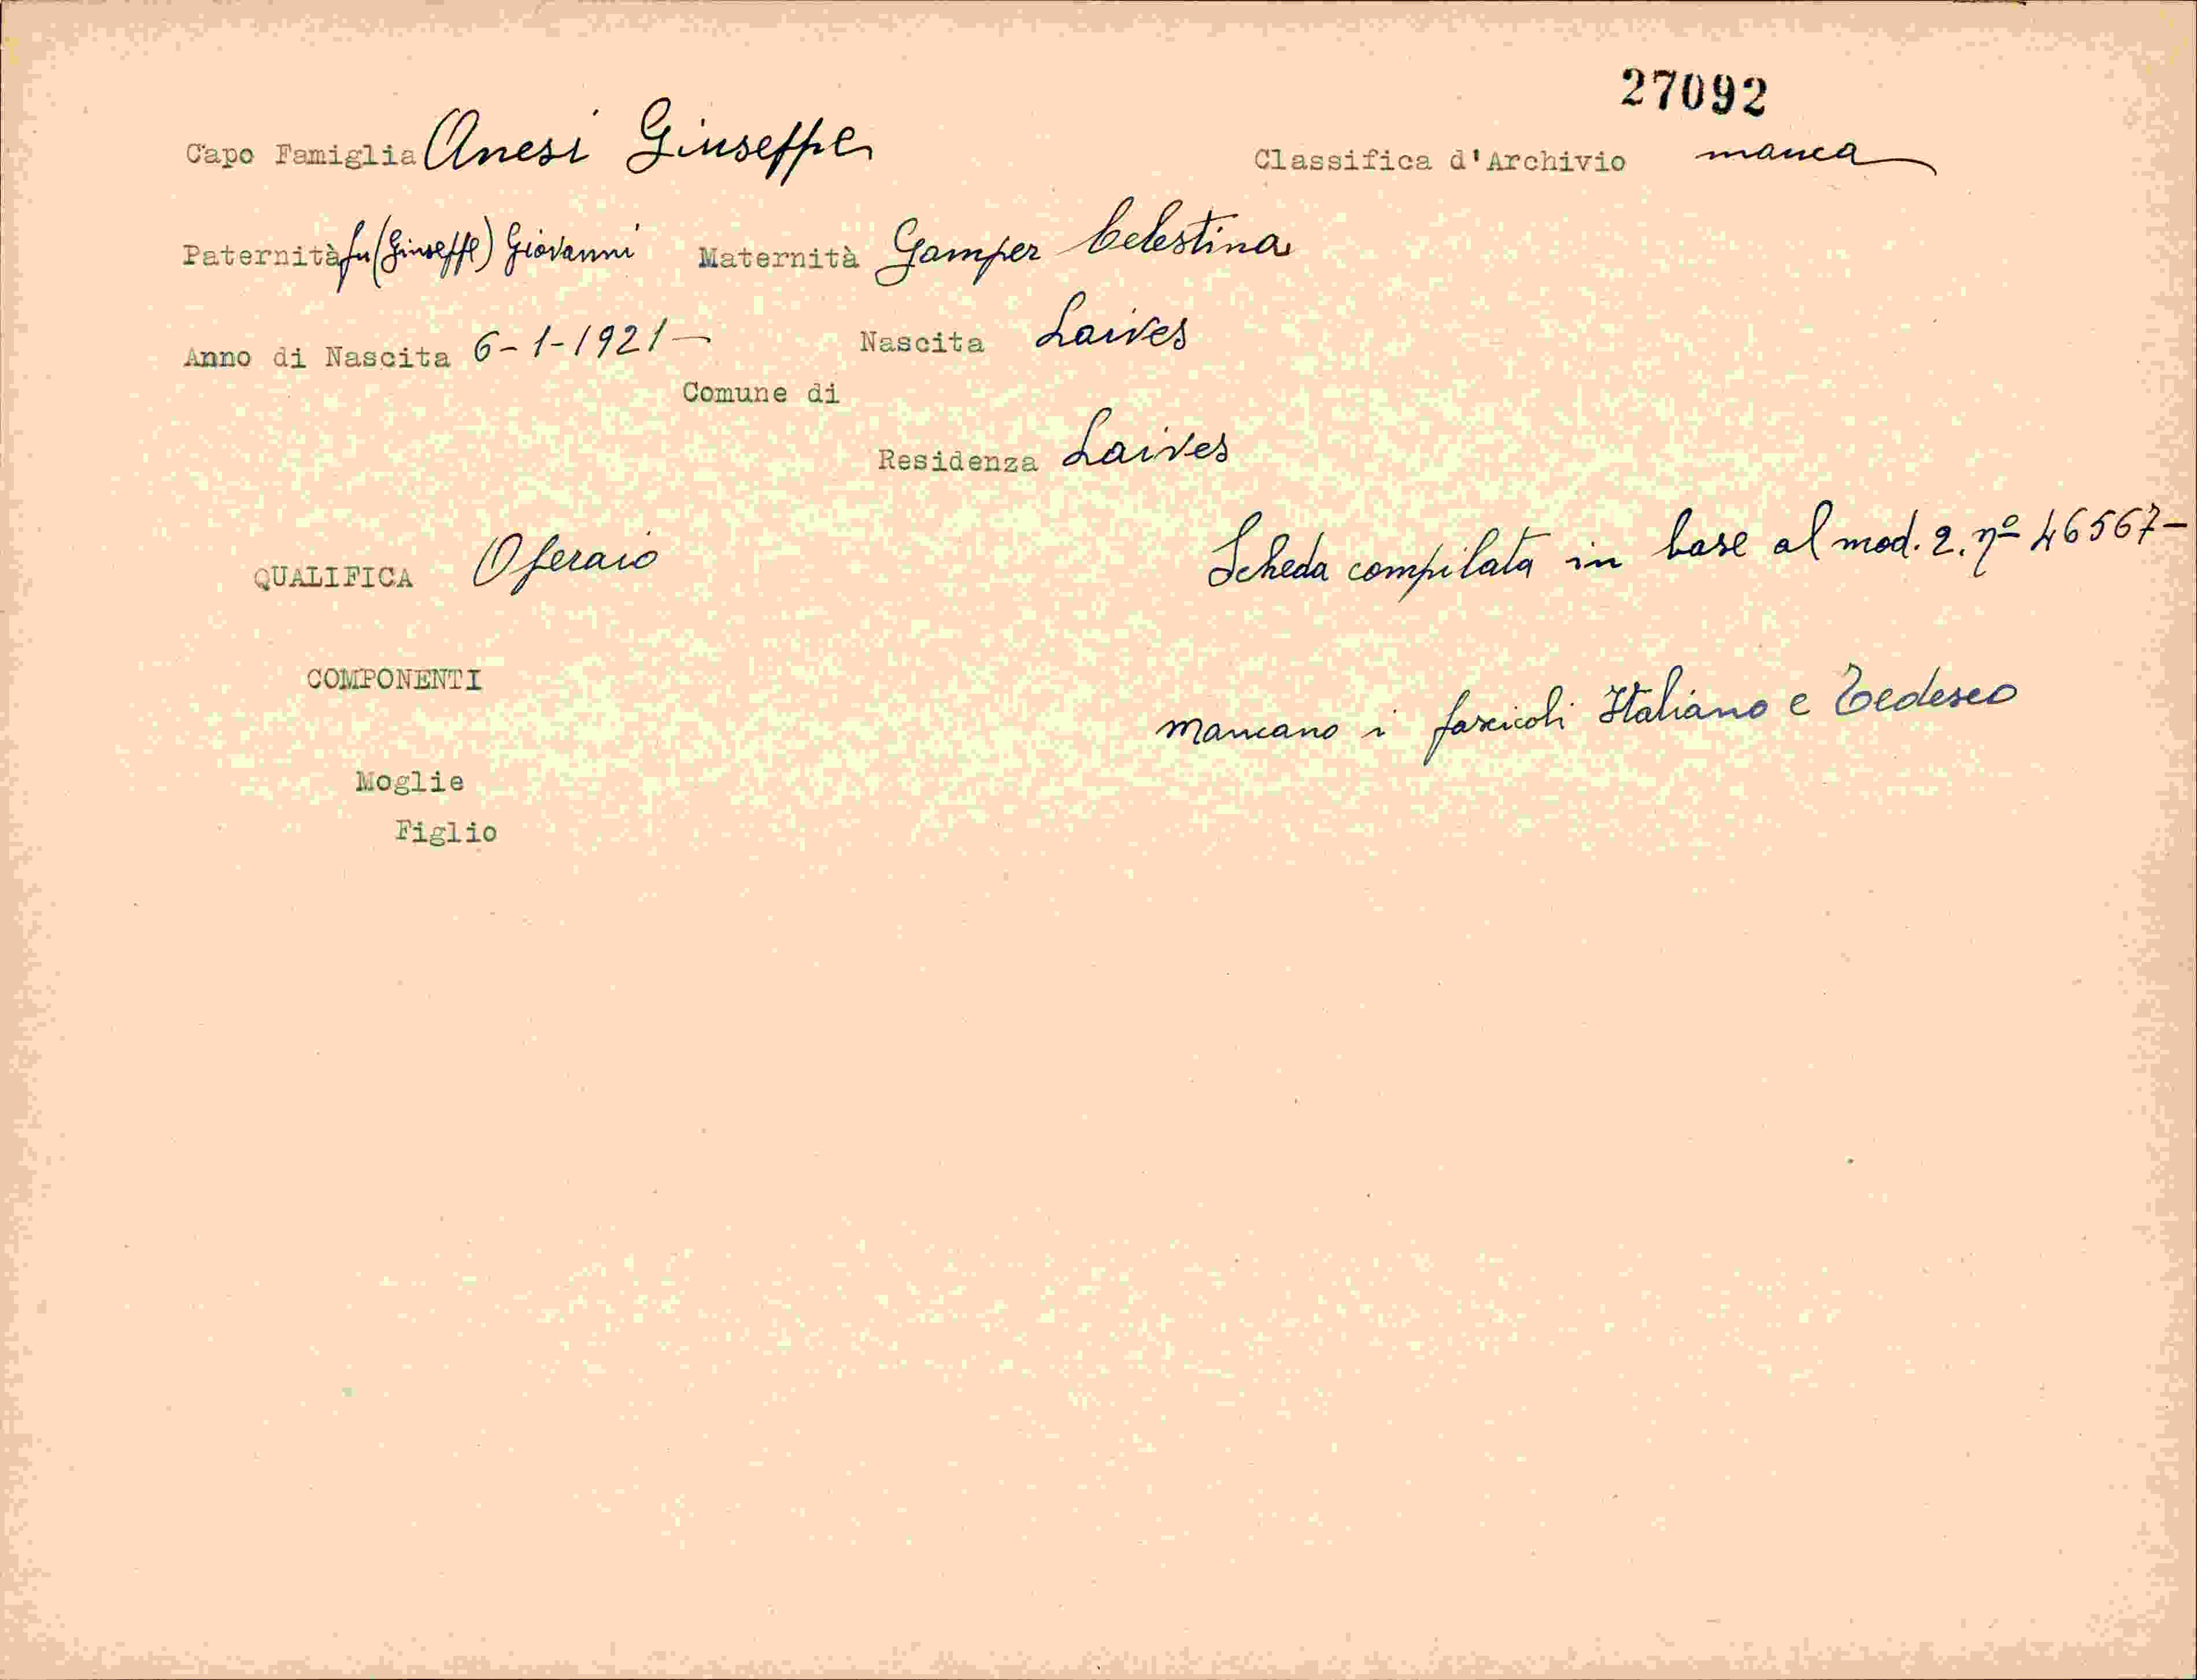 27092
Capo Famiglia Anesi Giuseppe Classifica d'Archivio manca
Paternità fu (Giuseppe) Giovanni Maternità Gamper Celestina
Anno di Nascita 6-1-1921- Nascita Laives
Comune di
Residenza Laives
QUALIFICA Operaio Scheda compilata in base al mod. 2. nº 46567-
COMPONENTI
mancano i fascicoli Italiano e Tedesco
Moglie
Figlio